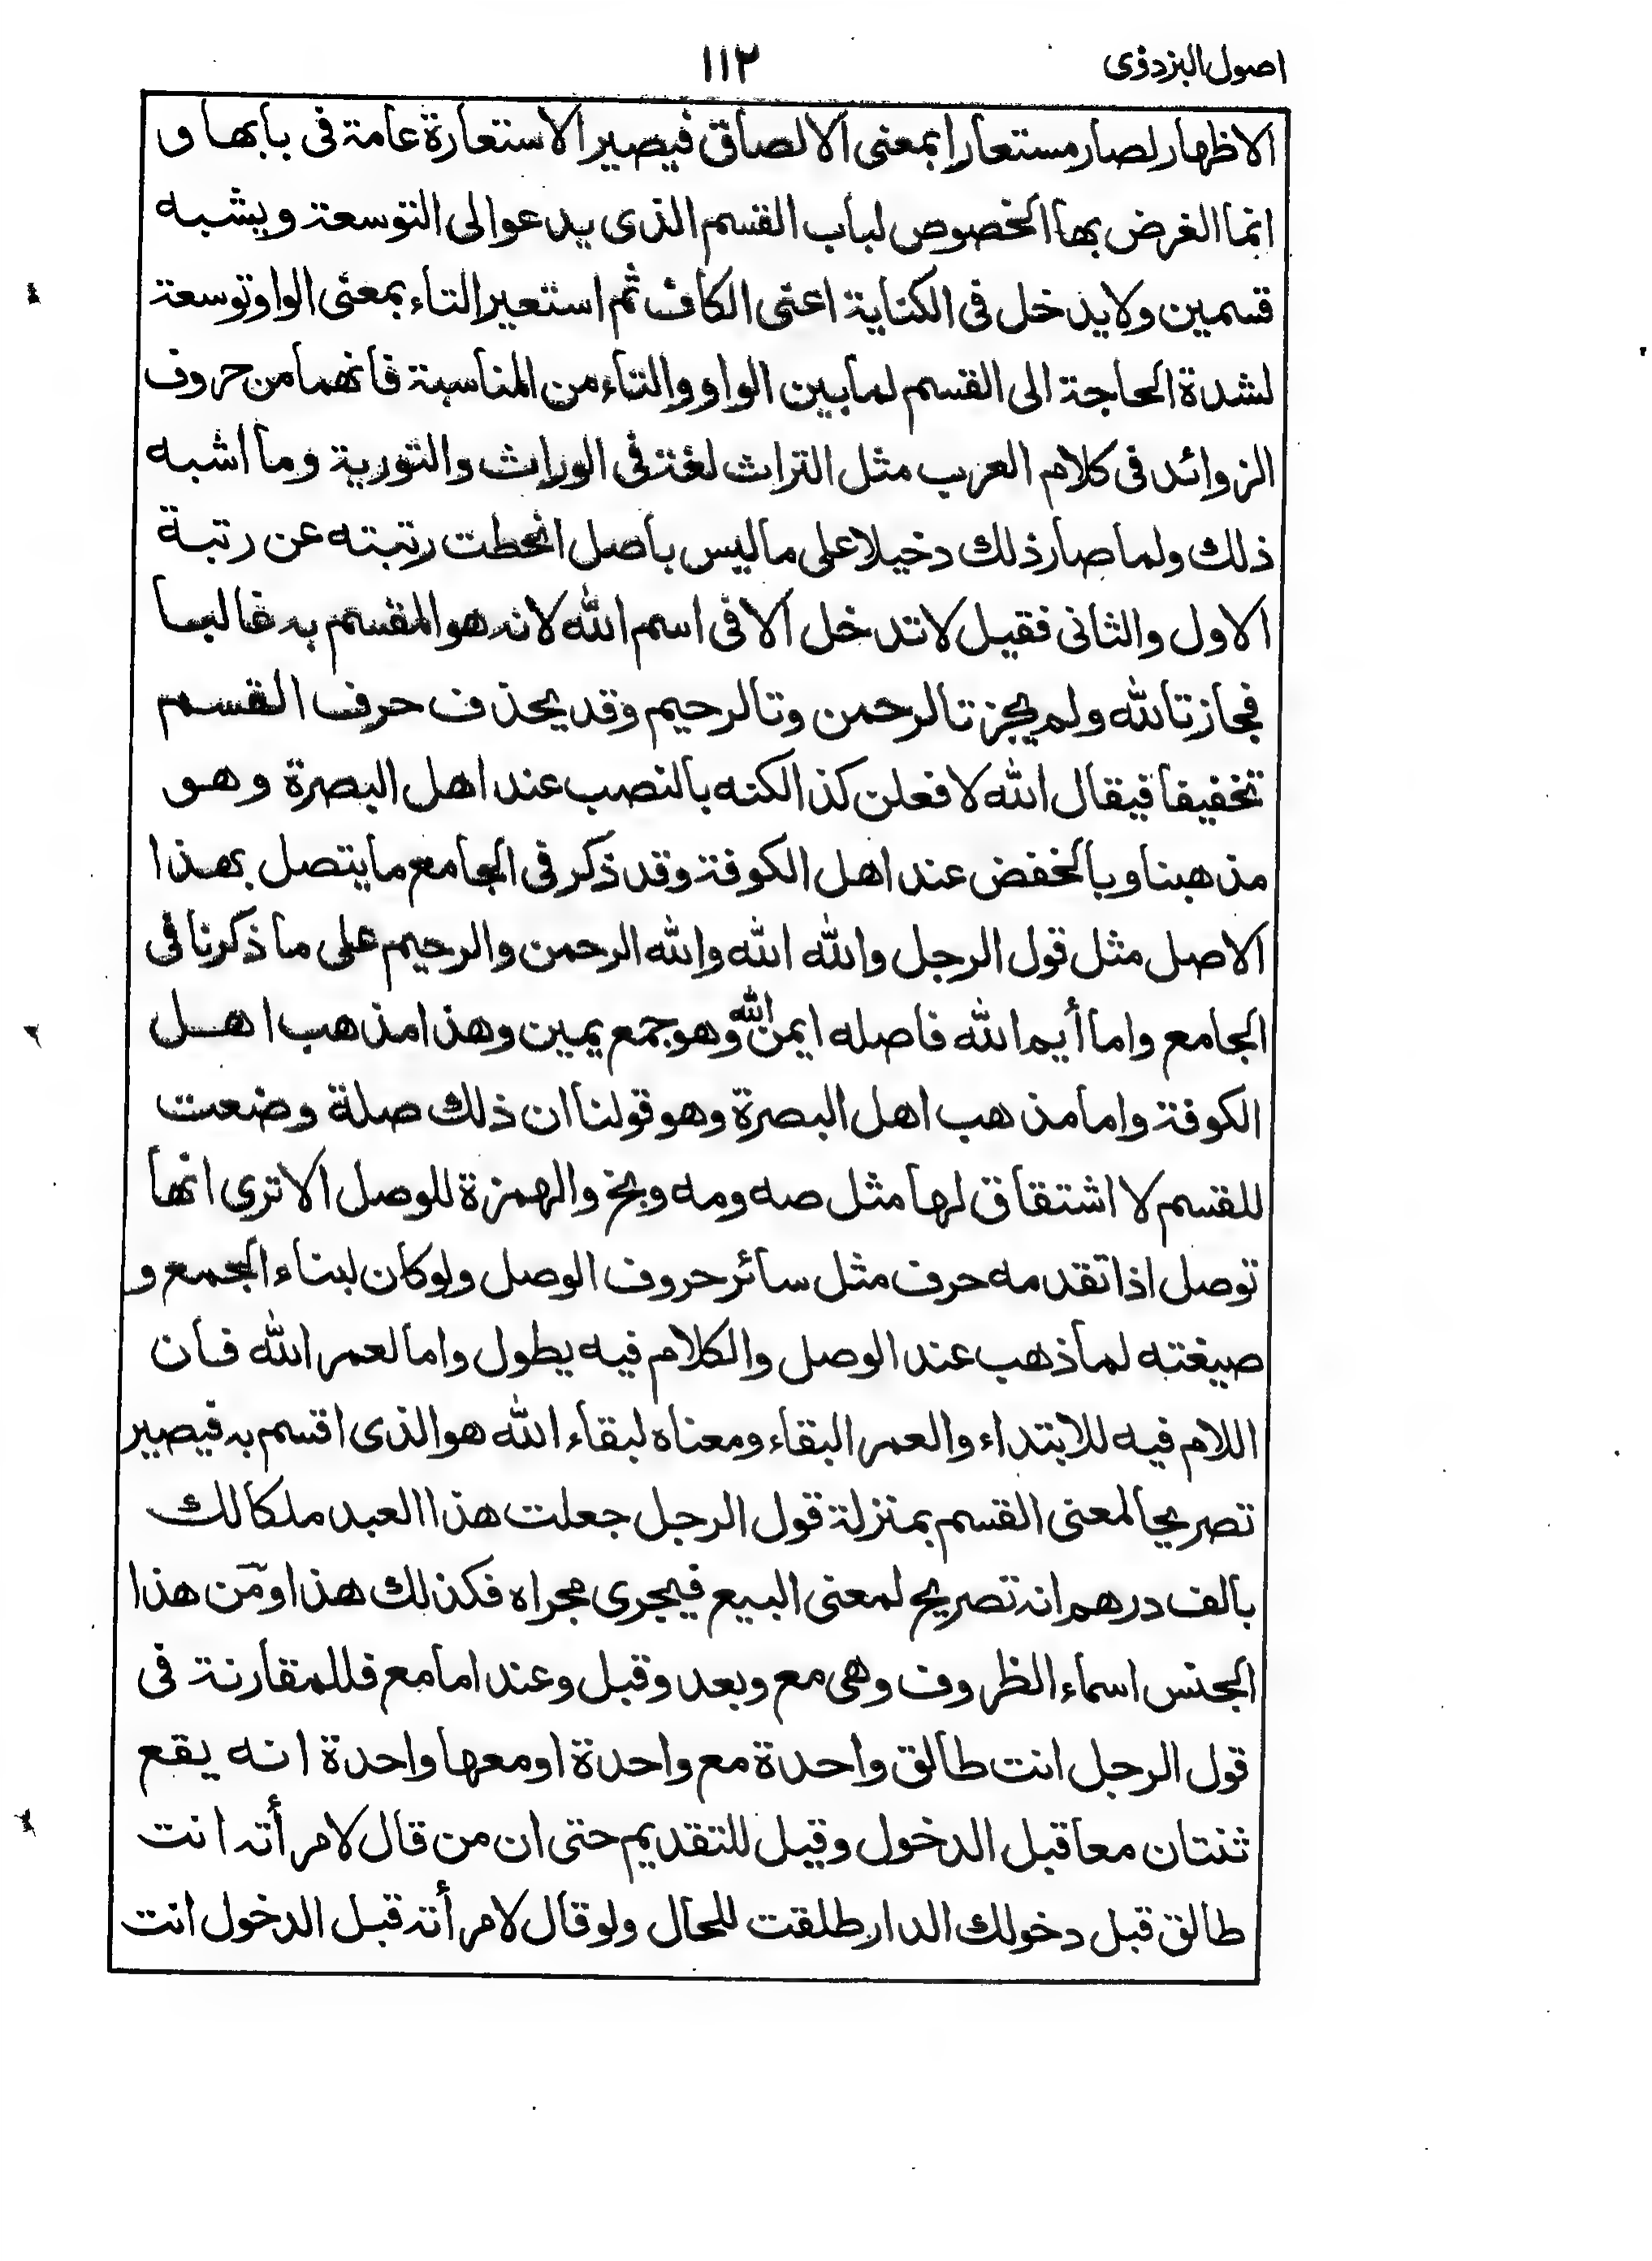 اصول البزدوى
١١٢
الاظهار لصار مستعارا بمعنى الالصاق فيصير الاستعارة عامة فى بابها و
انما الغرض بها الخصوص لباب القسم الذى يدعوا الى التوسعة ويشبه
قسمين ولا يدخل فى الكناية اعنى الكاف ثم استعير التاء بمعنى الواو توسعة
لشدة الحاجة الى القسم لما بين الواو والتاء من المناسبة فانهما من حروف
الزوائد فى كلام العرب مثل التراث لغة فى الوراث والتورية وما اشبه
ذلك ولما صار ذلك دخيلا على ما ليس باصل انحطت رتبته عن رتبة
الاول والثانى فقيل لا تدخل الا فى اسم الله لانه هو المقسم به غالبا
فجاز تالله ولم يجز تالرحمن وتالرحيم وقد يحذف حرف القسم
تخفيفا فيقال الله لافعلن كذا لكنه بالنصب عند اهل البصرة وهو
مذهبنا وبالخفض عند اهل الكوفة وقد ذكر فى الجامع ما يتصل بهذا
الاصل مثل قول الرجل والله الله والله الرحمن والرحيم على ما ذكرنا فى
الجامع واما أيم الله فاصله ايمن الله وهو جمع يمين وهذا مذهب اهل
الكوفة واما مذهب اهل البصرة وهو قولنا ان ذلك صلة وضعت
للقسم لا اشتقاق لها مثل صه ومه وبخ والهمزة للوصل الا ترى انها
توصل اذا تقدمه حرف مثل سائر حروف الوصل ولو كان لبناء الجمع و
صيغته لما ذهب عند الوصل والكلام فيه يطول واما لعمر الله فان
اللام فيه للابتداء والعمر البقاء ومعناه لبقاء الله هو الذى اقسم به فيصير
تصريحا لمعنى القسم بمنزلة قول الرجل جعلت هذا العبد ملكا لك
بالف درهم انه تصريح لمعنى البيع فيجرى مجراه فكذلك هذا ومن هذا
الجنس اسماء الظروف وهى مع وبعد وقبل وعند اما مع فللمقارنة فى
قول الرجل انت طالق واحدة مع واحدة او معها واحدة انه يقع
ثنتان معا قبل الدخول وقبل للتقديم حتى ان من قال لامرأته انت
طالق قبل دخولك الدار طلقت للحال ولو قال لامرأته قبل الدخول انت